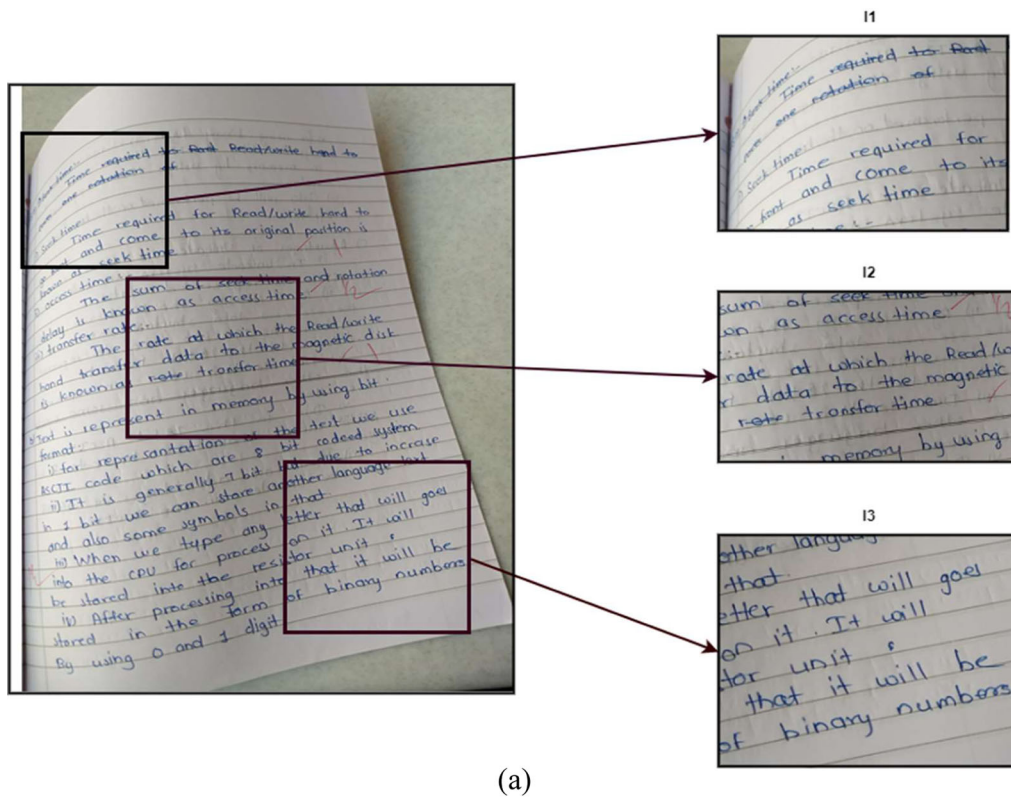 Seek time:-
Time required to Read Read/write hand to
one rotation of
Seek time:-
Time required for Read/write hand to
front and come to its original position is
known as seek time
access time:-
The sum of seek time and rotation
delay is known as access time
transfer rate:-
The rate at which the Read/write
hand transfer data to the magnetic disk
is known as rate transfer time
Text is represent in memory by using bit
format:-
i) for represantation of the text we use
ASCII code which are 8 bit codeed system
ii) It is generally 7 bit but due to incrase
in 1 bit we can store another language
and also some symbols in that
iii) When we type any letter that will goes
into the CPU for process on it. It will
be stored into the resistor unit
iv) After processing into that it will be
stored in the form of binary numbers
By using 0 and 1 digit
I1
Seek time:-
Time required to Read
one rotation of
Seek time:-
Time required for
front and come to its
as seek time
I2
sum of seek time
wn as access time
rate at which the Read/w
r data to the magnetic
rate transfer time
memory by using
I3
other language
that
etter that will goes
on it. It will
tor unit
that it will be
of binary numbers
(a)